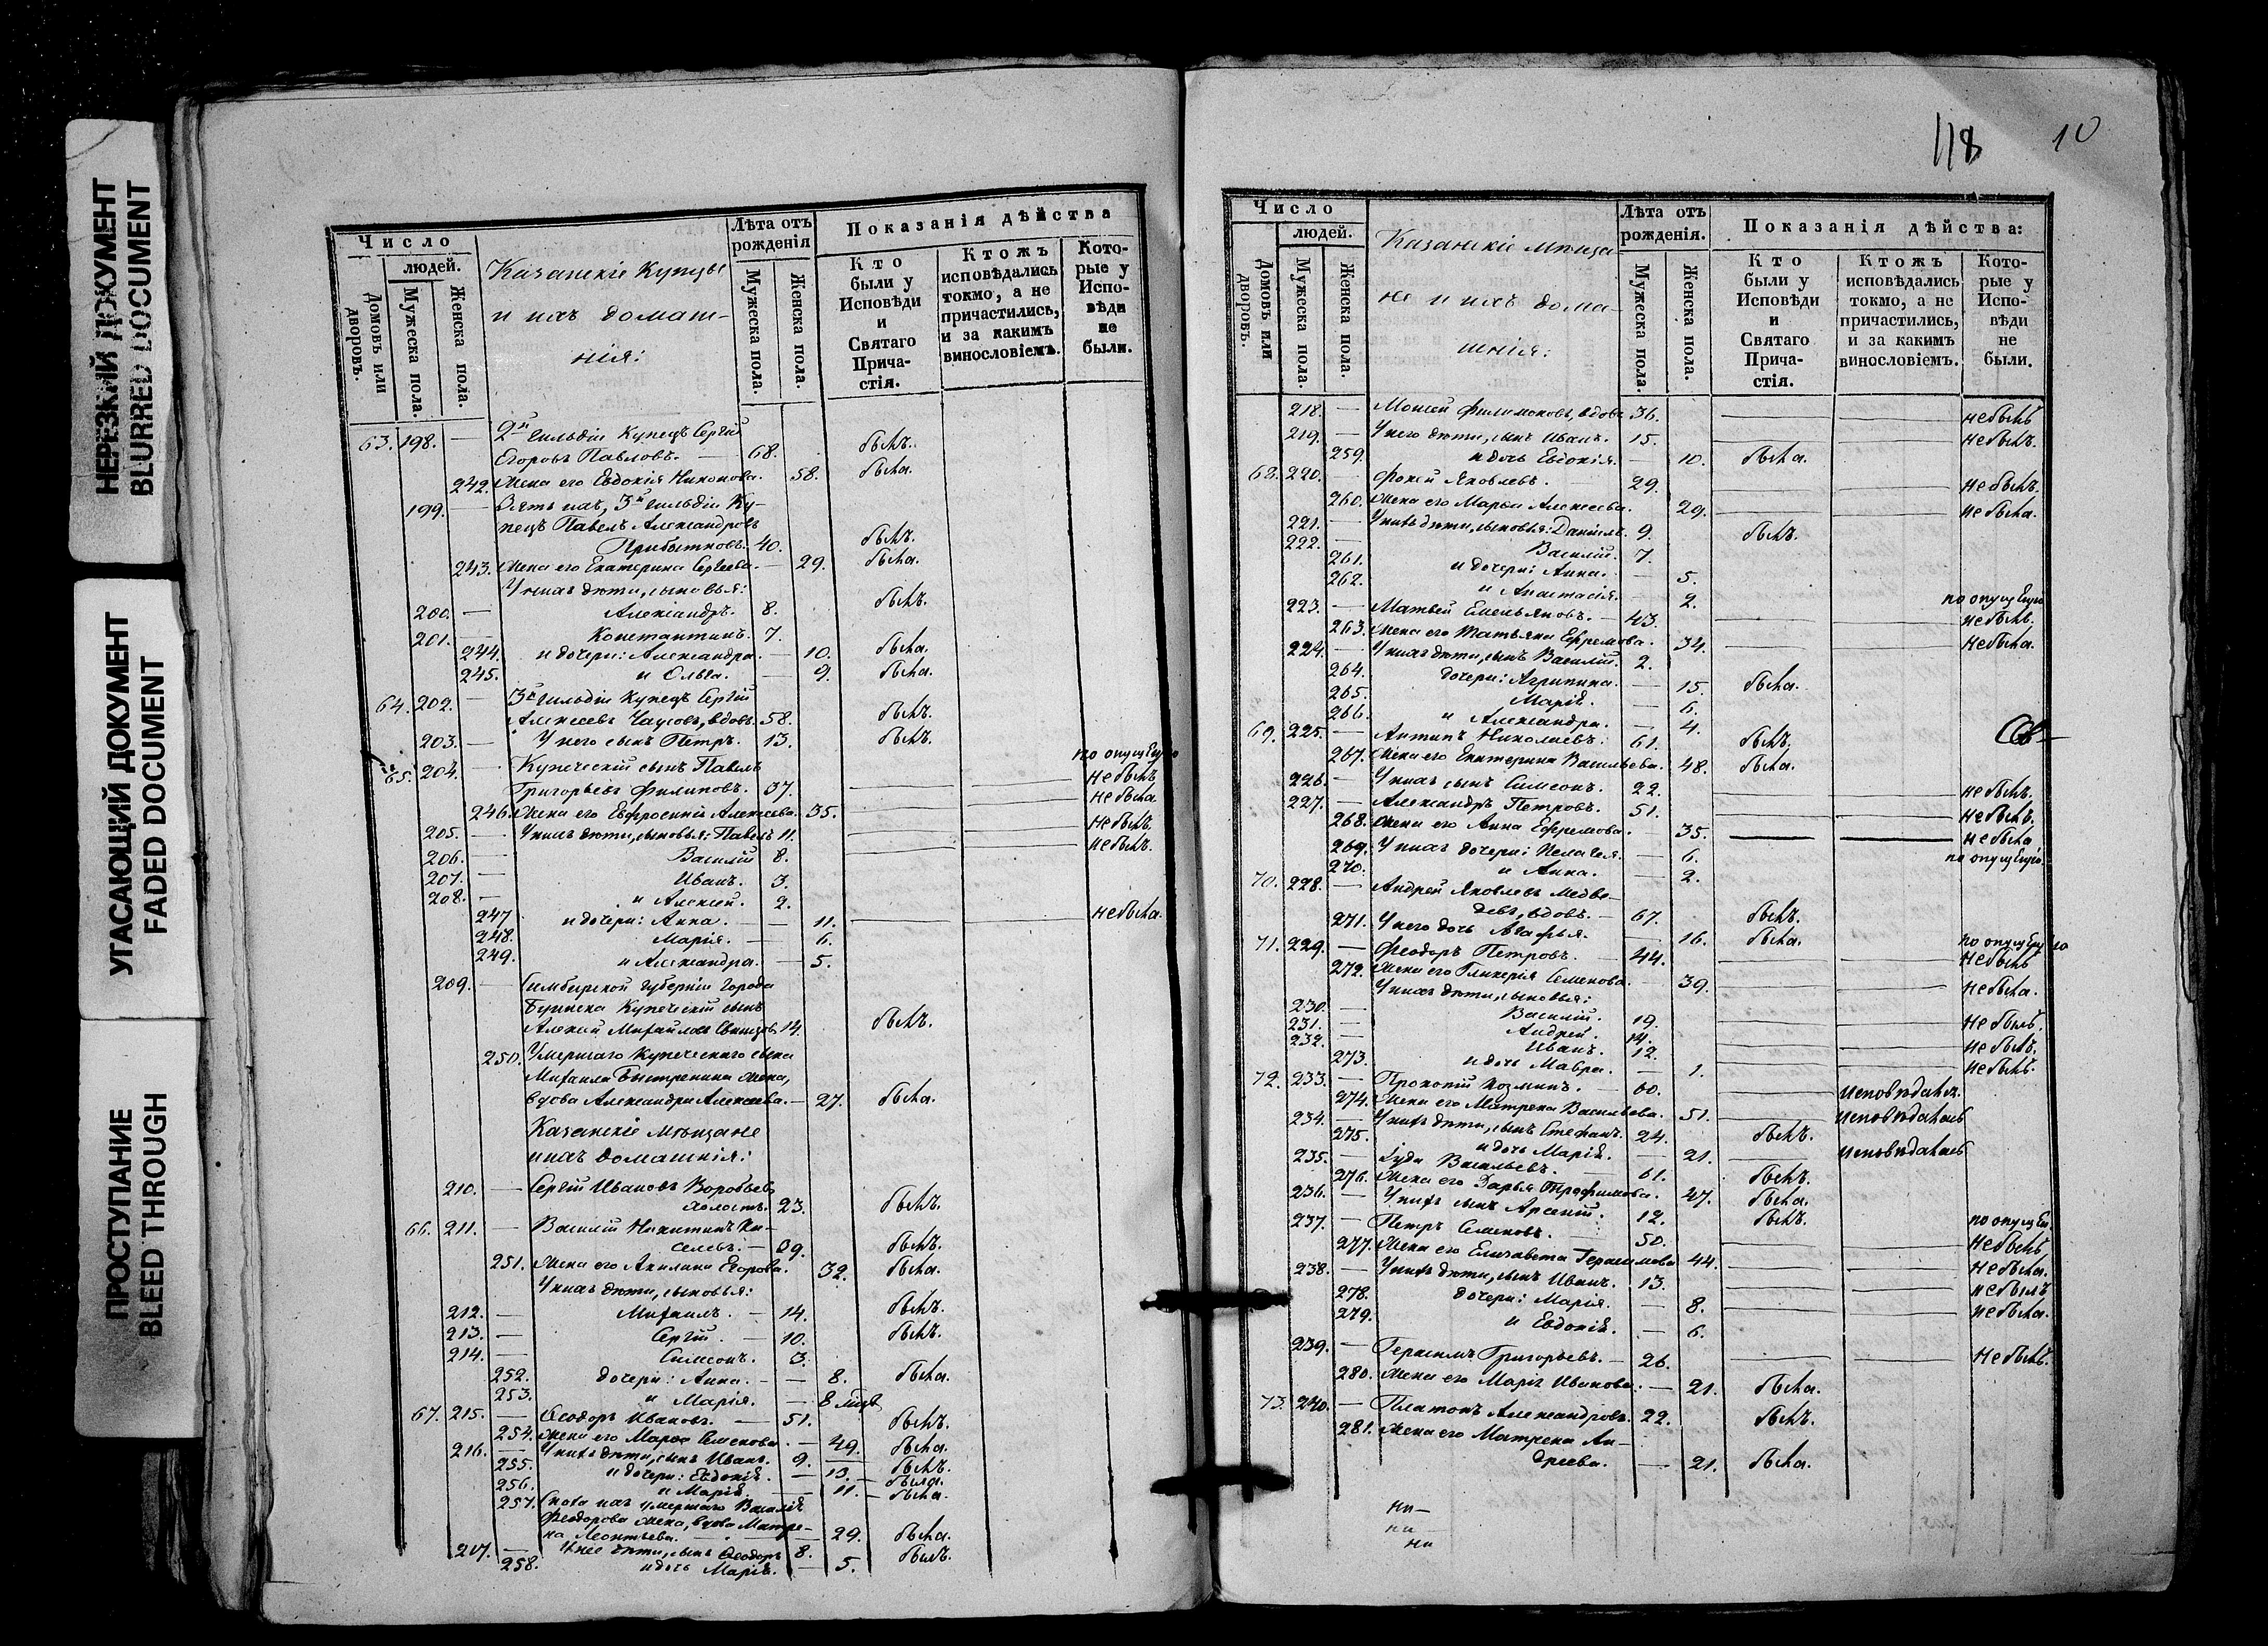 НЕРЕЗКИЙ ДОКУМЕНТ
BLURRED DOCUMENT
УГАСАЮЩИЙ ДОКУМЕНТ
FADED DOCUMENT
ПРОСТУПАНИЕ
BLEED THROUGH
Число
людей.
Домовъ или дворовъ.
Мужеска пола.
Женска пола.
Казанскіе Купцы
и ихъ домаш-
нія:
Лѣта отъ рожденія
Мужеска пола.
Женска пола.
Показанія дѣйства
Кто были у Исповѣди и Святаго Прича-стія.
Ктожъ исповѣдались токмо, а не причастились, и за какимъ винословіемъ.
Кото-рые у Испо-вѣди не были.
63. 198. — 2й гильдіи Купецъ Сергій
Егоровъ Павловъ. — 68. былъ.
242. Жена его Евдокія Никонова. 58. была.
199. — Зять ихъ, 3й гильдіи Ку-
пецъ Павелъ Александровъ
Прибытковъ. 40. былъ.
243. Жена его Екатерина Сергеева. — 29. была.
У нихъ дѣти, сыновья:
200. — Александръ. 8. былъ.
201. — Константинъ. 7.
244. и дочери: Александра. — 10. была.
245. и Ольга. — 9. была.
64. 202. — 3й гильдіи Купецъ Сергій
Алексеевъ Чаусовъ, вдовъ. 58. былъ.
203. — У него сынъ Петръ. 13. былъ.
65. 204. — Купеческій сынъ Павелъ по опущенію
Григорьевъ Филиповъ. 37. не былъ
246. Жена его Евфросинія Алексеева. 35. не была
205. — У нихъ дѣти, сыновья: Павелъ 11. не былъ
206. — Василій 8. не былъ.
207. — Иванъ. 3.
208. — и Алексей. 2.
247 и дочери: Анна. — 11. не была.
248. Марія. — 6.
249. и Александра. — 5.
209. — Симбирской губерніи города
Буинска Купеческій сынъ
Алексей Михайловъ 14. былъ.
250. Умершаго Купеческаго сына
Михаила Быстренина жена,
вдова Александра Алексеева. — 27. была.
Казанскіе мѣщане
и ихъ домашнія:
210. — Сергій Ивановъ Воробьевъ
холостъ. 23. былъ.
66. 211. — Василій Никитинъ Ки-
селевъ. — 39. былъ.
251. Жена его Акилина Егорова. 32. была.
У нихъ дѣти, сыновья:
212. — Михаилъ. — 14. былъ.
213. — Сергій. — 10. былъ.
214. — Симеонъ. 3.
252. дочери: Анна. — 8. была.
253. и Марія. — 8 мѣсъ
67. 215. — Ѳеодоръ Ивановъ. — 51. былъ.
254. Жена его Марѳа Семенова. — 49. была.
216. — У нихъ дѣти, сынъ Иванъ. 9. былъ.
255. и дочери: Евдокія. — 13. была.
256. и Марія. — 11. — была.
257. Сноха ихъ умершаго Василія
Феодорова жена, вдова Матре-
на Леонтьева. — 29. была.
217. — У нее дѣти, сынъ Ѳеодоръ 8. былъ.
258. и дочь Марія. — 5.
118 10
Число
людей.
Домовъ или дворовъ.
Мужеска пола.
Женска пола.
Казанскіе мѣща-
не и ихъ дома-
шнія:
Лѣта отъ рожденія.
Мужеска пола.
Женска пола.
Показанія дѣйства:
Кто были у Исповѣди и Святаго Прича-стія.
Ктожъ исповѣдались токмо, а не причастились, и за какимъ винословіемъ.
Кото-рые у Испо-вѣди не были.
218. — Моисей Филимоновъ, вдовъ 36. не былъ
219. — У него дѣти, сынъ Иванъ. 15. не былъ.
259. и дочь Евдокія. — 10. была.
68. 220. — Фокей Яковлевъ. 29. не былъ.
260. Жена его Марья Алексеева. 29. не была.
221. — У нихъ дѣти, сыновья: Даніилъ. 9. былъ.
222. — Василій. 7.
261. и дочери: Анна. — 5.
262. и Анастасія. — 2.
223. — Матвей Емельяновъ. — 43. по опущенію не былъ.
263. Жена его Татьяна Ефремова. 34. не была.
224. — У нихъ дѣти, сынъ Василій. 2.
264. дочери: Агрипина. — 15. была.
265. Марія. — 6.
266. и Александра. — 4.
69. 225. — Антипъ Николаевъ. 61. былъ.
267. Жена его Екатерина Васильева. 48. была.
226. — У нихъ сынъ Симеонъ. 22. не былъ.
227. — Александръ Петровъ. 51. не былъ.
268. Жена его Анна Ефремова. — 35. не была
269. У нихъ дочери: Пелагея. — 6. по опущенію
270. и Анна. — 2.
70. 228. — Андрей Яковлевъ Медве-
девъ, вдовъ. — 67. былъ.
271. У него дочь Агафья. — 16. была.
71. 229. — Феодоръ Петровъ. — 44. по опущенію не былъ
272. Жена его Гликерія Семенова. 39. не была.
У нихъ дѣти, сыновья:
230. — Василій. 19. не былъ.
231. — Андрей. 14. не былъ.
232. — Иванъ. 12. не былъ.
273. и дочь Мавра. — 1.
72. 233. — Прокопій Козминъ. — 60. исповѣдался.
274. Жена его Матрена Васильева. 51. исповѣдалась
234. — У нихъ дѣти, сынъ Стефанъ. 24. былъ.
275. и дочь Марія. — 21. исповѣдалась
235. — Іуда Васильевъ. — 61. былъ.
276. Жена его Дарья Трофимова. 47. была.
236. — У нихъ сынъ Арсеній. 12. былъ.
237. — Петръ Семеновъ. 50. по опущен. не былъ
277. Жена его Елизавета Герасимова 44. не была.
238. — У нихъ дѣти, сынъ Иванъ. 13. не былъ
278. дочери: Марія. — 8. не была.
279. и Евдокія. — 6.
239. — Герасимъ Григорьевъ. — 26. не былъ.
280. Жена его Марія Иванова. — 21. была.
73. 240. — Платонъ Александровъ. 22. былъ.
281. Жена его Матрена Ан-
дреева. — 21. была.